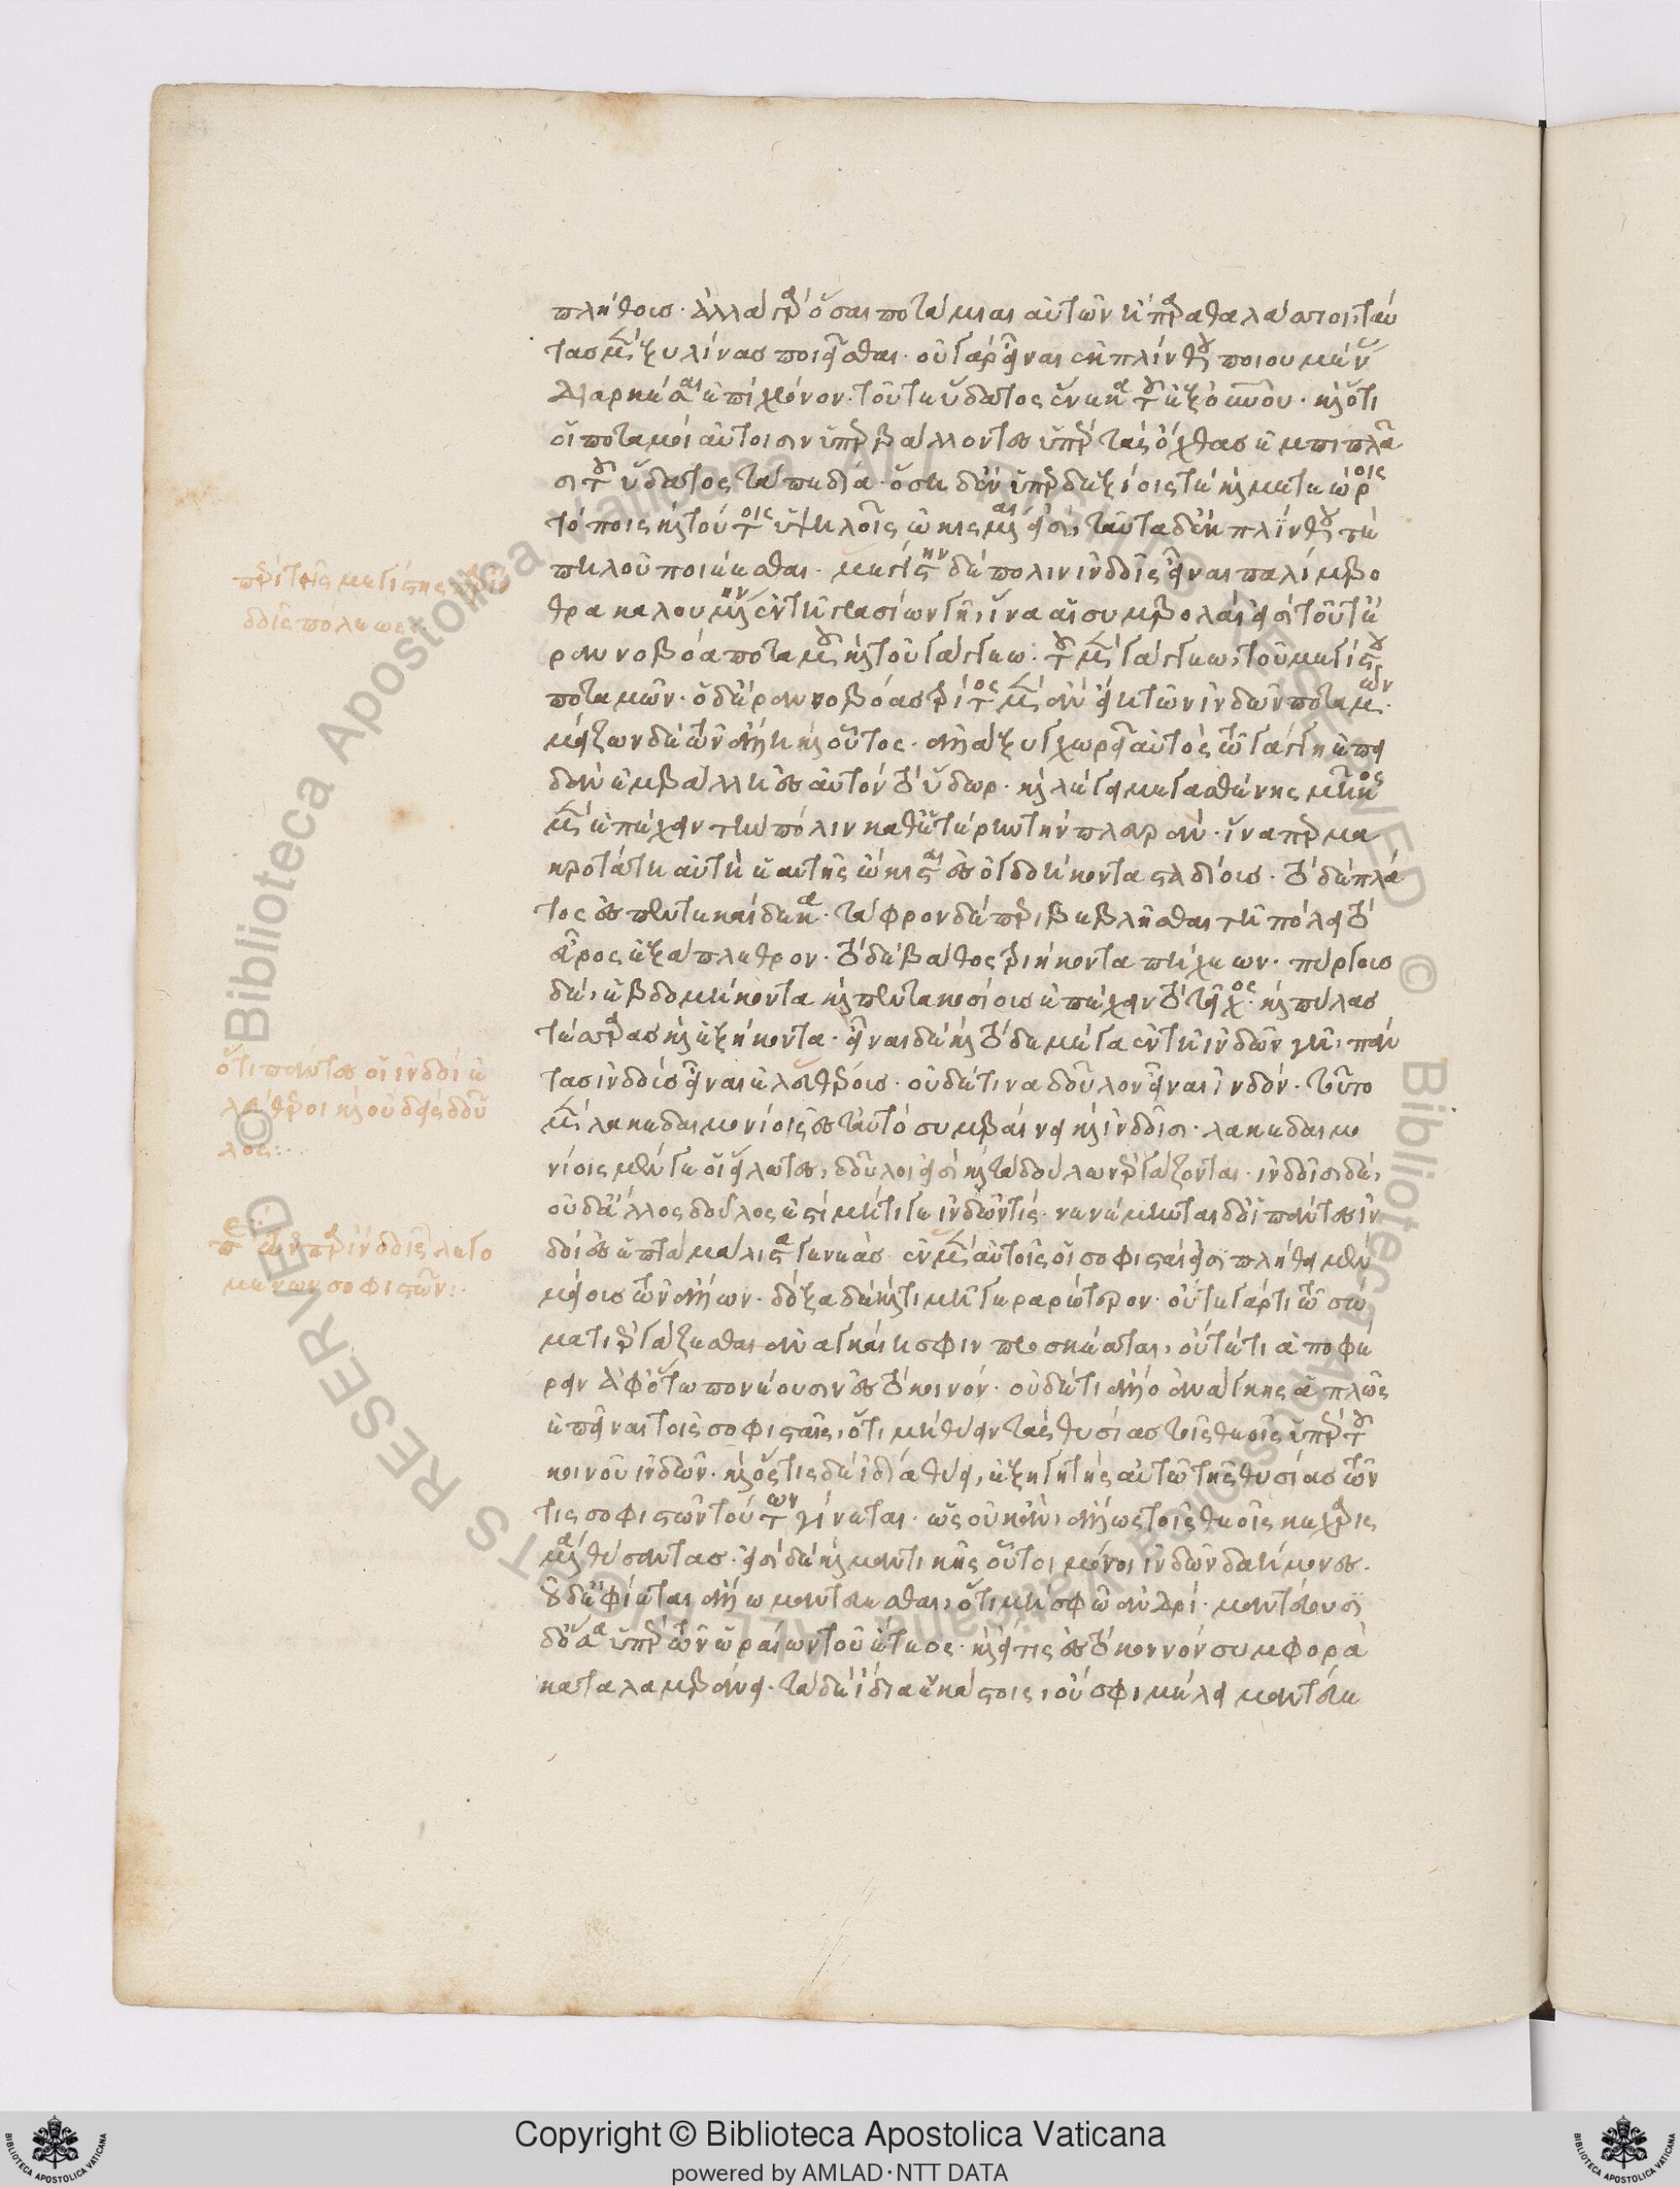 πλήθους· ἀλλὰ γὰρ ὅσαι ποτάμιαι αὐτῶν ἢ παραθαλάσσιοι, ταύ
τας μὲν ξυλίνας ποιεῖσθαι· οὐ γὰρ εἶναι ἐκ πλίνθου ποιουμέν
διαρκέσαι ἐπὶ χρόνον· τοῦ τε ὕδατος ἕνεκα τοῦ ἐξ οὐνοῦ· καὶ ὅτι
οἱ ποταμοὶ αὐτοῖσιν ὑπερβάλλοντες ὑπὲρ τὰς ὄχθας ἐμπιπλᾶ
σι τοῦ ὕδατος τὰ πεδία· ὅσαι δὲ ἐν ὑπερδεξίοις τε καὶ μετεώροις
τόποις καὶ τούτοις ὑψηλοῖς ᾠκισμέναι εἰσί, ταῦτα δὲ ἐκ πλίνθου τε
πηλοῦ ποιέεσθαι· μεγίστην δὲ πόλιν ἰνδοῖς εἶναι παλίμβο
θρα καλουμένην ἐν τῇ πρασίων γῇ, ἵνα αἱ συμβολαί εἰσι τοῦ τε ἐ
ραννοβόα ποταμοῦ καὶ τοῦ γάγγεω· τοῦ μὲν γάγγεω, τοῦ μεγίστου
ποταμῶν· ὁ δὲ ἐραννοβόας τρίτος μὲν ἂν εἴη τῶν ἰνδῶν ποταμῶν·
μείζων δὲ τῶν ἄλλη καὶ οὗτος· ἀλλὰ ξυγχωρεῖ αὐτὸς τῷ γάγγῃ ἐπει
δὰν ἐμβάλλῃ ἐς αὐτὸν τὸ ὕδωρ· καὶ λέγει μεγασθένης μῆκος
μὲν ἐπέχειν τὴν πόλιν καθ' ἑτέρην τὴν πλευράν· ἵνα περ μα
κροτάτη αὐτὴ ἑαυτῆς ᾤκισται ἐς ὀγδοήκοντα σταδίους· τὸ δὲ πλά
τος ἐς πεντεκαίδεκα· τάφρον δὲ περιβεβλῆσθαι τῇ πόλει τὸ
εὖρος ἑξάπλεθρον· τὸ δὲ βάθος τριήκοντα πήχεων· πύργους
δὲ, ἑβδομήκοντα καὶ πεντακοσίους ἐπέχειν τὸ τεῖχος· καὶ πύλας
τέσσαρας καὶ ἑξήκοντα· εἶναι δὲ καὶ τόδε μέγα ἐν τῇ ἰνδῶν γῇ, πάν
τας ἰνδοὺς εἶναι ἐλευθέρους· οὐδέ τινα δοῦλον εἶναι ἰνδόν· τοῦτο
μὲν λακεδαιμονίοις ἐς ταὐτὸ συμβαίνει καὶ ἰνδοῖσι· λακεδαιμο
νίοις μέν γε οἱ εἵλωτες, δοῦλοι εἰσὶ καὶ τὰ δούλων ἐργάζονται· ἰνδοῖσι δὲ,
οὐδὲ ἄλλος δοῦλος ἐστὶ μήτι γε ἰνδῶν τίς· νενέμηνται δὲ οἱ πάντες ἰν
δοὶ ἐς ἑπτὰ μάλιστα γενεάς· ἐν μὲν αὐτοῖς οἱ σοφισταί εἰσι πλήθει μὲν
μείους τῶν ἄλλων· δόξᾳ δὲ καὶ τιμῇ γεραρώτερον· οὔτε γάρ τι τῷ σώ
ματι ἐργάζεσθαι ἀναγκαίη σφιν προσκέαται, οὔτέ τι ἀποφέ
ρειν ἀφ' ὅτῳ πονέουσιν ἐς τὸ κοινόν· οὐδέ τι ἄλλο ἀνάγκης ἁπλῶς
ἐπεῖναι τοῖς σοφισταῖς, ὅτι μὴ θύειν τὰς θυσίας τοῖς θεοῖς ὑπὲρ τοῦ
κοινοῦ ἰνδῶν· καὶ ὅστις δὲ ἰδίᾳ θύει, ἐξηγητὴς αὐτῷ τῆς θυσίας τῶν
τις σοφιστῶν τούτων γίνεται· ὡς οὐκ ἂν, ἄλλως τοῖς θεοῖς κεχαρις
μένα θύσαντας· εἰσὶ δὲ καὶ μαντικῆς οὗτοι μόνοι ἰνδῶν δαήμονες·
οὐδὲ ἐφίεται ἄλλῳ μαντεύεσθαι, ὅτι μὴ σοφῷ ἀνδρί· μαντεύουσι
δὲ ὅσα ὑπὲρ τῶν ὡραίων τοῦ ἔτεος· καὶ εἴ τις ἐς τὸ κοινὸν συμφορὰ
καταλαμβάνει· τὰ δὲ ἴδια ἑκάστοις, οὔ σφι μέλει μαντεύε
περὶ τῆς μεγίστης παρ' ἰν
δοῖς πόλεως
ὅτι πάντες οἱ ἰνδοὶ ἐ
λεύθεροι καὶ οὐδεὶς δοῦ
λος:·
περὶ τῶν παρ' ἰνδοῖς λεγο
μένων σοφιστῶν:·
Copyright © Biblioteca Apostolica Vaticana
powered by AMLAD·NTT DATA